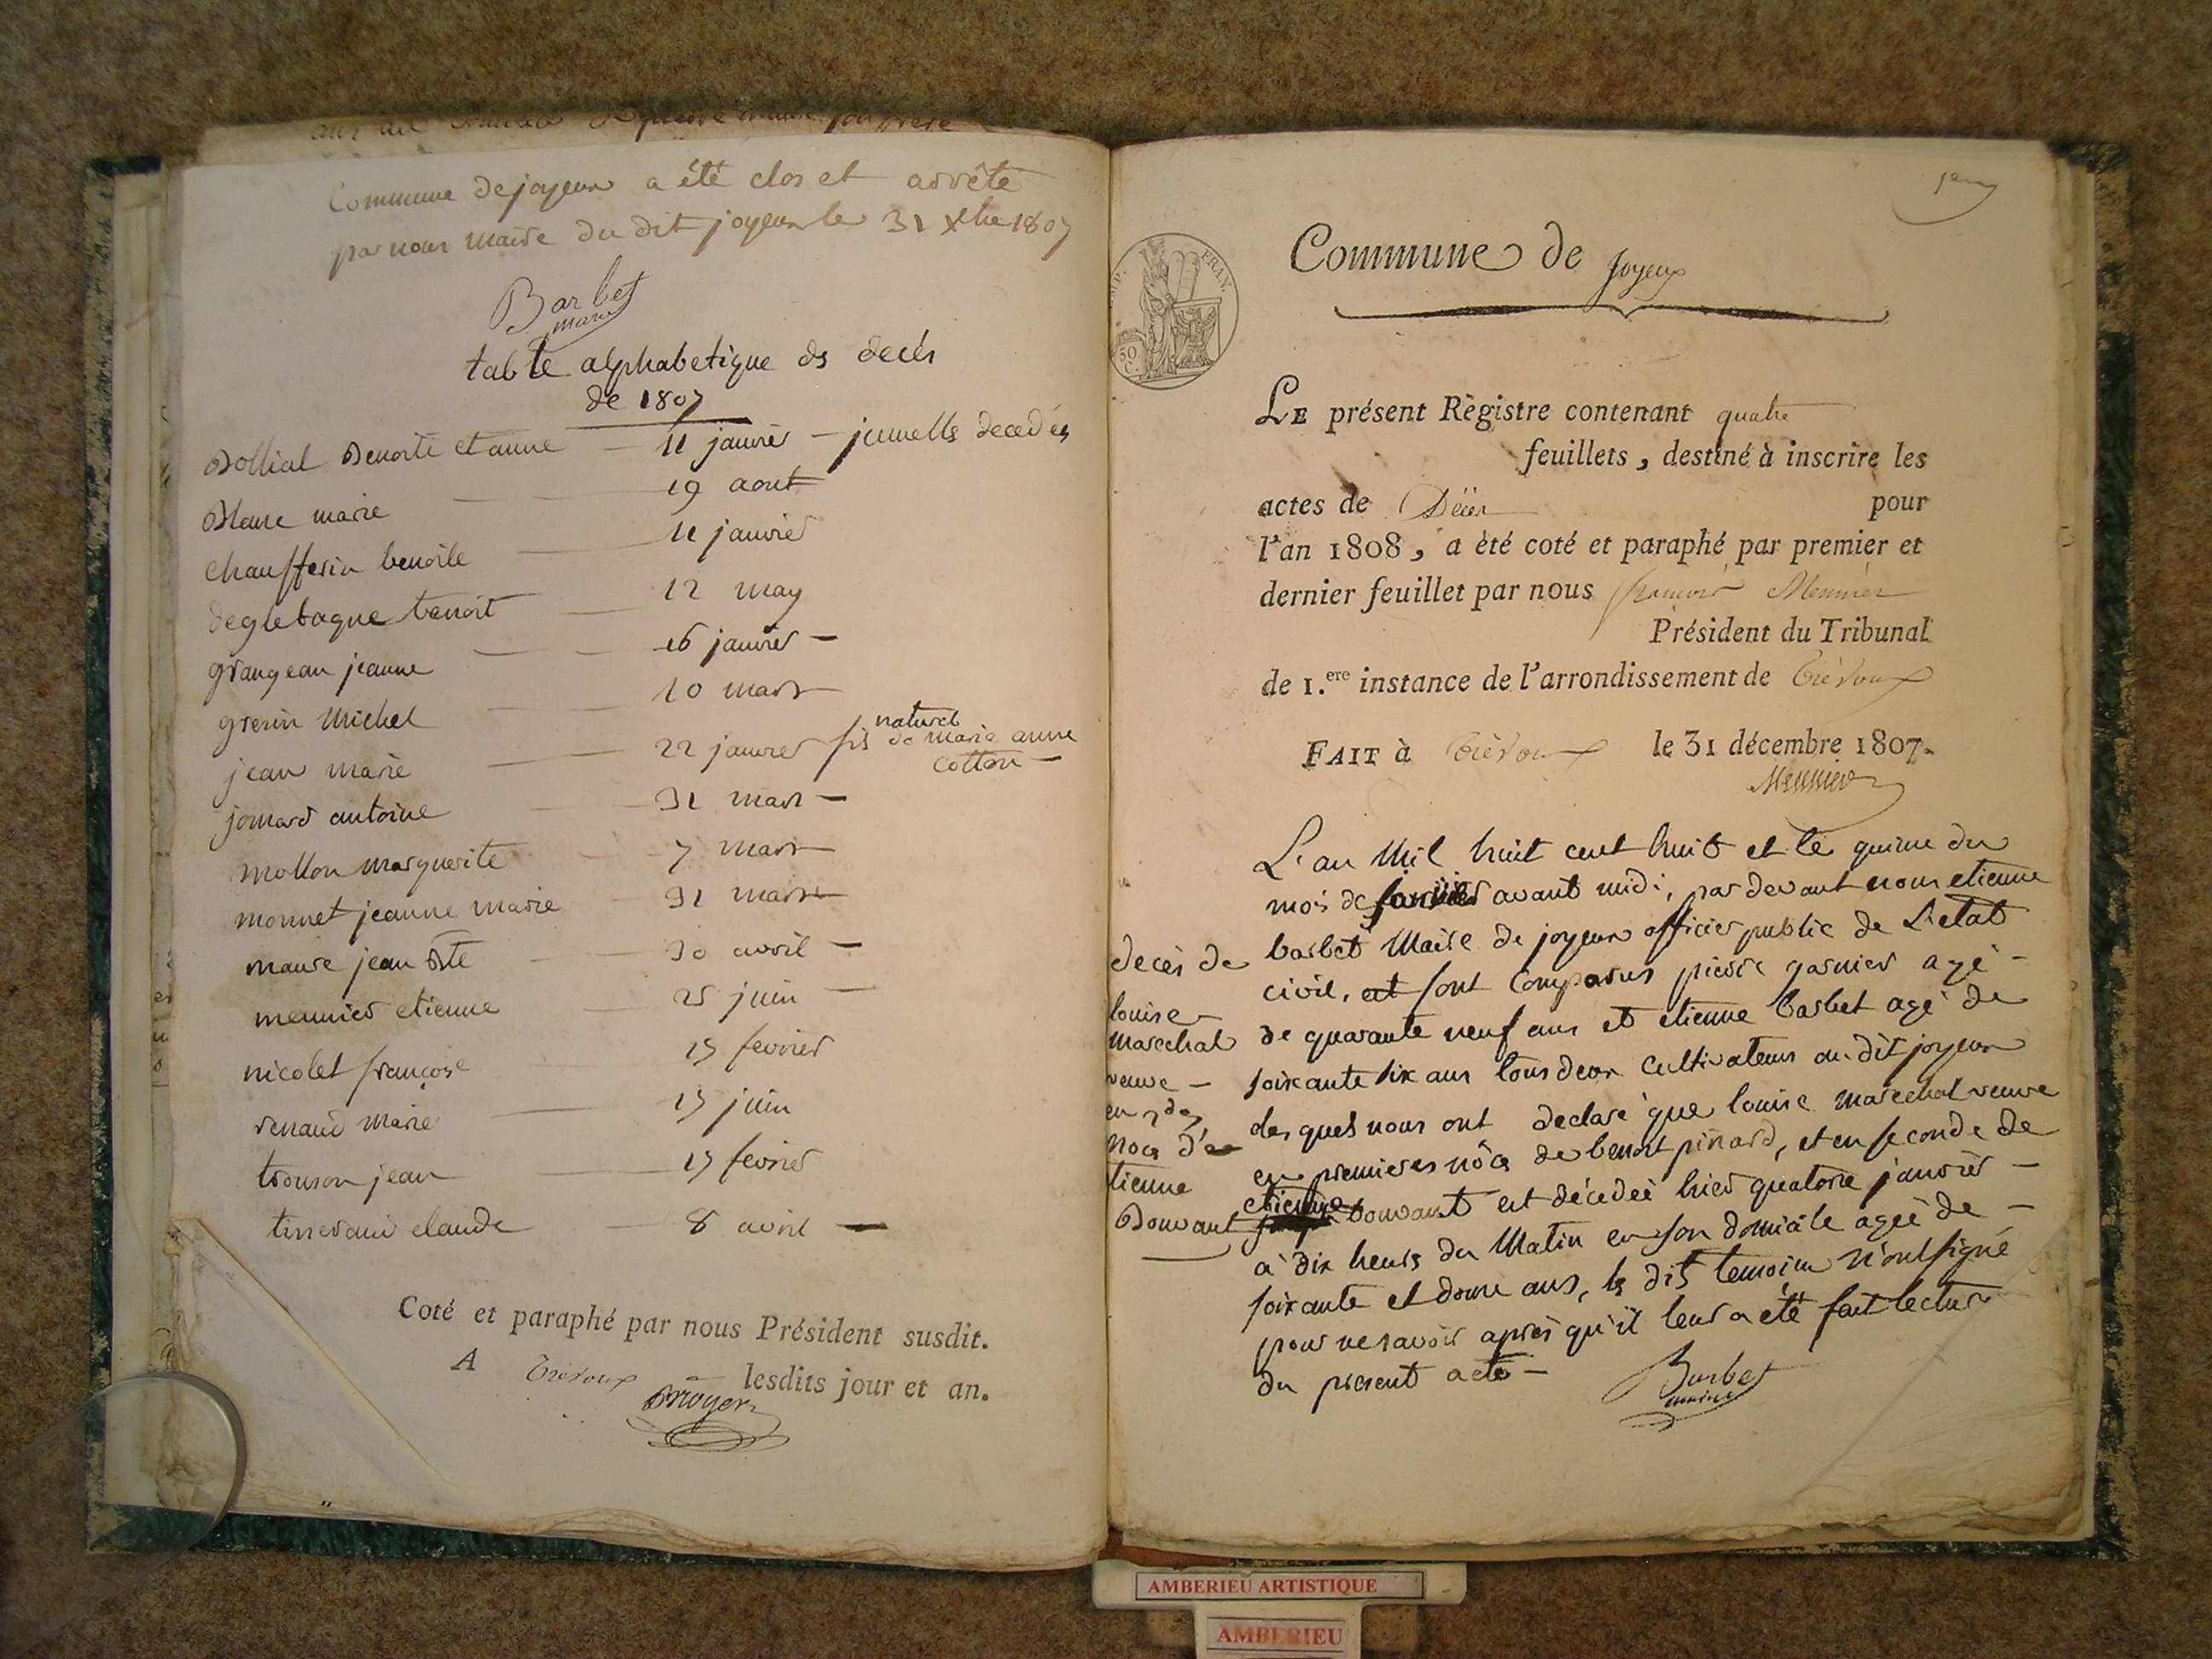 Commune de joyeux a été clos et arrêté
par nous maire du dit joyeux le 31 Xbre 1807
Barbet
maire
table alphabetique ds decès
de 1807
Benoite et anne — 11 janvier — jumells decedés
Blanc marie — 19 aout
chaufferin benoite — 11 janvier
deglebagne benoit — 12 may
grangean jeanne — 16 janvier —
grenin michel — 10 mars
naturel
jean marie — 22 janvier fils de marie anne
cotton —
jomard antoine — 31 mars —
mollon marguerite — 7 mars
monnet jeanne marie — 31 mars
maure jean Bte — 30 avril —
meunier etienne — 25 juin —
nicolet françoise — 15 fevrier
renaud marie — 15 juin
trouson jean — 15 fevrier
claude — 8 avril —
Coté et paraphé par nous Président susdit.
A Trévoux lesdits jour et an.
Commune de joyeux
FRAN.
50
C.
LE présent Règistre contenant quatre
feuillets, destiné à inscrire les
actes de Décès pour
l'an 1808, a été coté et paraphé par premier et
dernier feuillet par nous françois Meunier
Président du Tribunal
de 1.ere instance de l'arrondissement de Trévoux
FAIT à Trévoux le 31 décembre 1807.
Meunier
decès de
louise
marechal
veuve —
en 2des
noces d'e
tienne
Bouvant
L'an mil huit cent huit et le quinze du
mois de janvier avant midi, par devant nous etienne
barbet maire de joyeux officier public de L'etat
civil, et sont comparus pierre garnier agé —
de quarante neuf ans et etienne barbet agé de
soixante six ans tous deux cultivateurs au dit joyeux
lesquels nous ont declaré que louise marechal veuve
en premieres nôces de benoit pinard, et en seconde de
etienne bouvant est décedeé hier quatorze janvier —
à dix heurs du matin en son domicile ageé de —
soixante et douze ans, ls dits temoins n'ont signé
pour ne savoir après qu'il leur a été fait lecture
du present acte —
Barbet
maire
AMBERIEU ARTISTIQUE
AMBERIEU